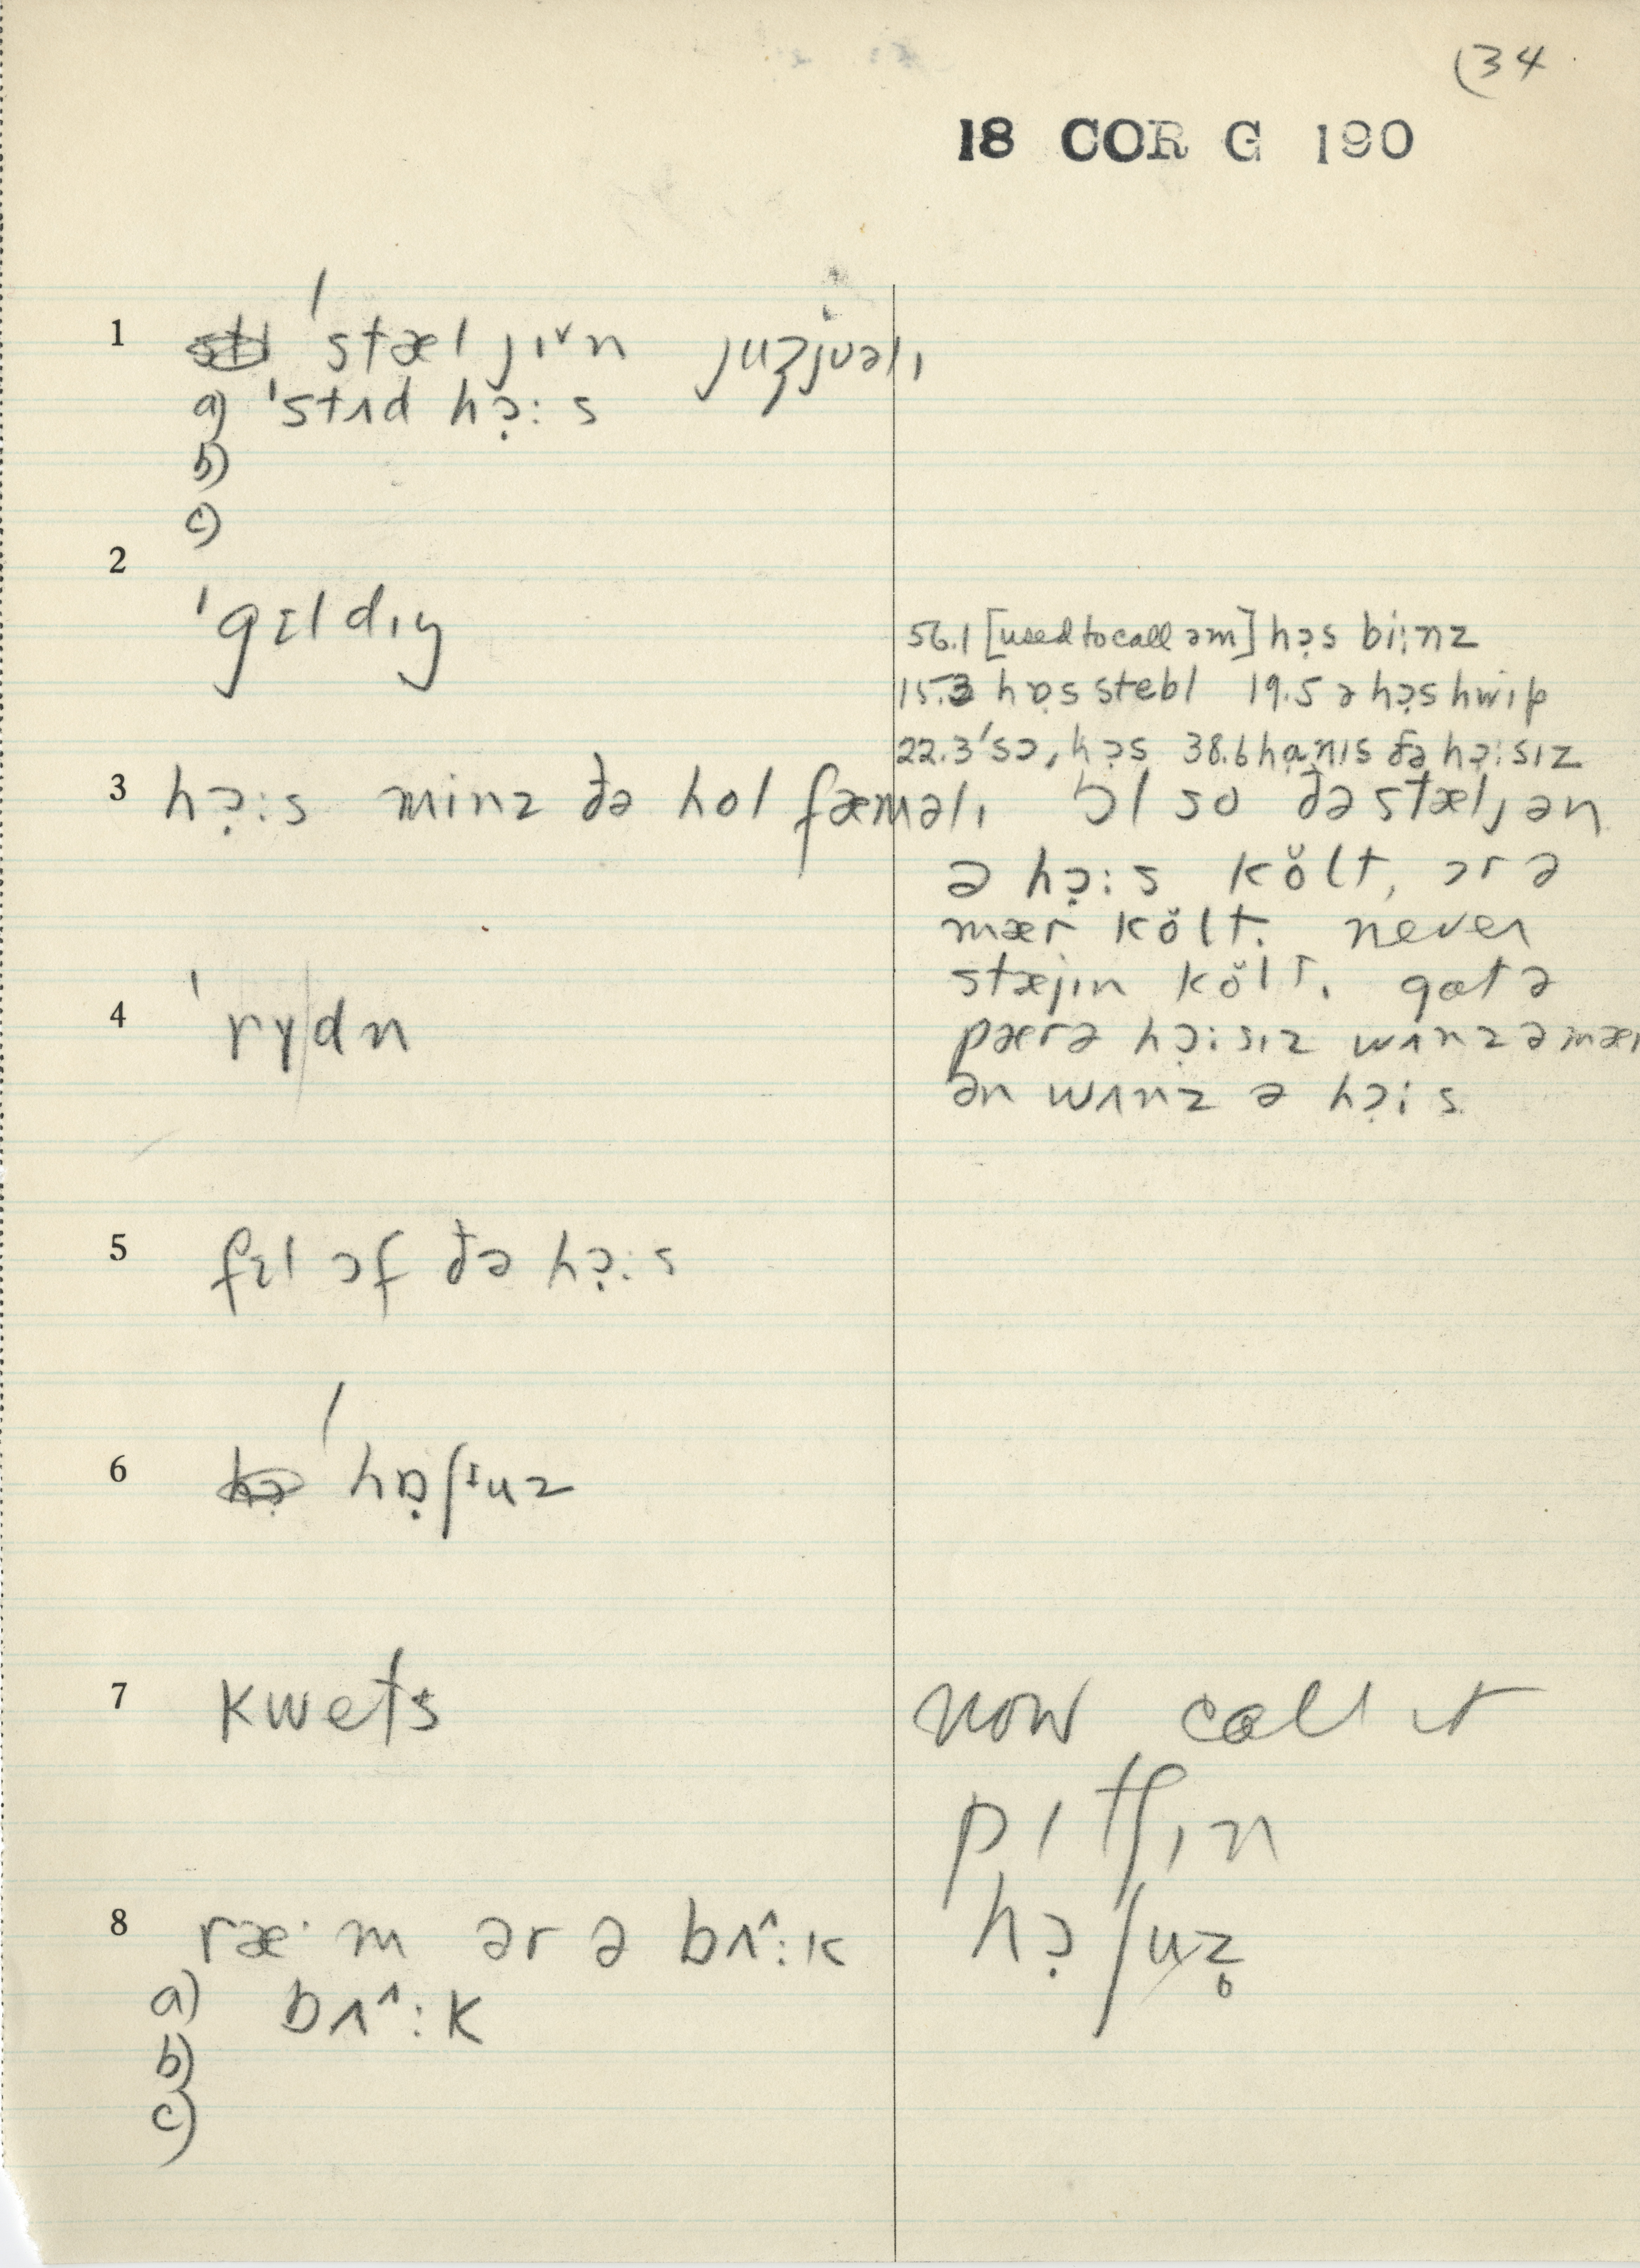 (34
18 COR G 190
1 ˈstæl jɪ˅n juʒjʊəlɪ
a) ˈstʌd hɔ̣:s
b)
c)
2
ˈgɪldɪŋ
56.1 [used to call əm] hɔ̣s bi:nz
15.3 hɒ̣s stebl 19.5 ə hɔ̣s hwɪp
22.3 ˈsɔ, hɔ̣s 38.6 hɑ̣nɪs ðə hɔ̣:sɪz
3 hɔ̣:s minz ðə hol fæməlɪ ɔl so ðə stæljən
ə hɔ̣:s kŏlt, ər ə
mær kŏlt. never
stæjɪn kŏlt. gɑt ə
pærə hɔ̣:sɪz wʌnz ə mær
ən wʌnz ə hɔ̣:s
4 ˈrydn
5 fɪl ɔf ðə hɔ̣:s
6 ˈhɒ̣ʃᵻuz
7 kwets now call it
pɪtʃɪn
hɔ̣ʃuz̥
8 ræ·m ər ə bʌ^:k
a) bʌ^:k
b)
c)